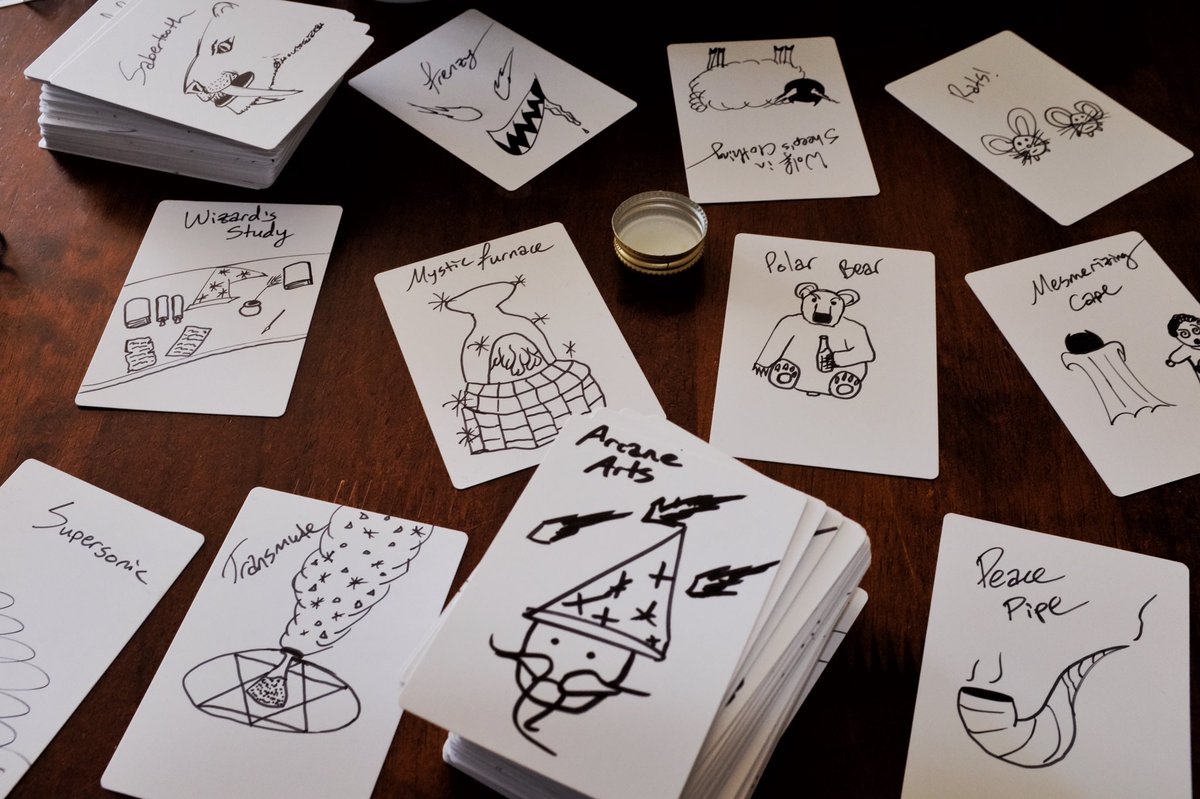 Sabertooth
Frenzy
Wolf in
Sheep's Clothing
Rats!
Wizard's
Study
Mystic furnace
Polar Bear
Mesmerizing
Cape
Supersonic
Transmute
Arcane
Arts
Peace
Pipe